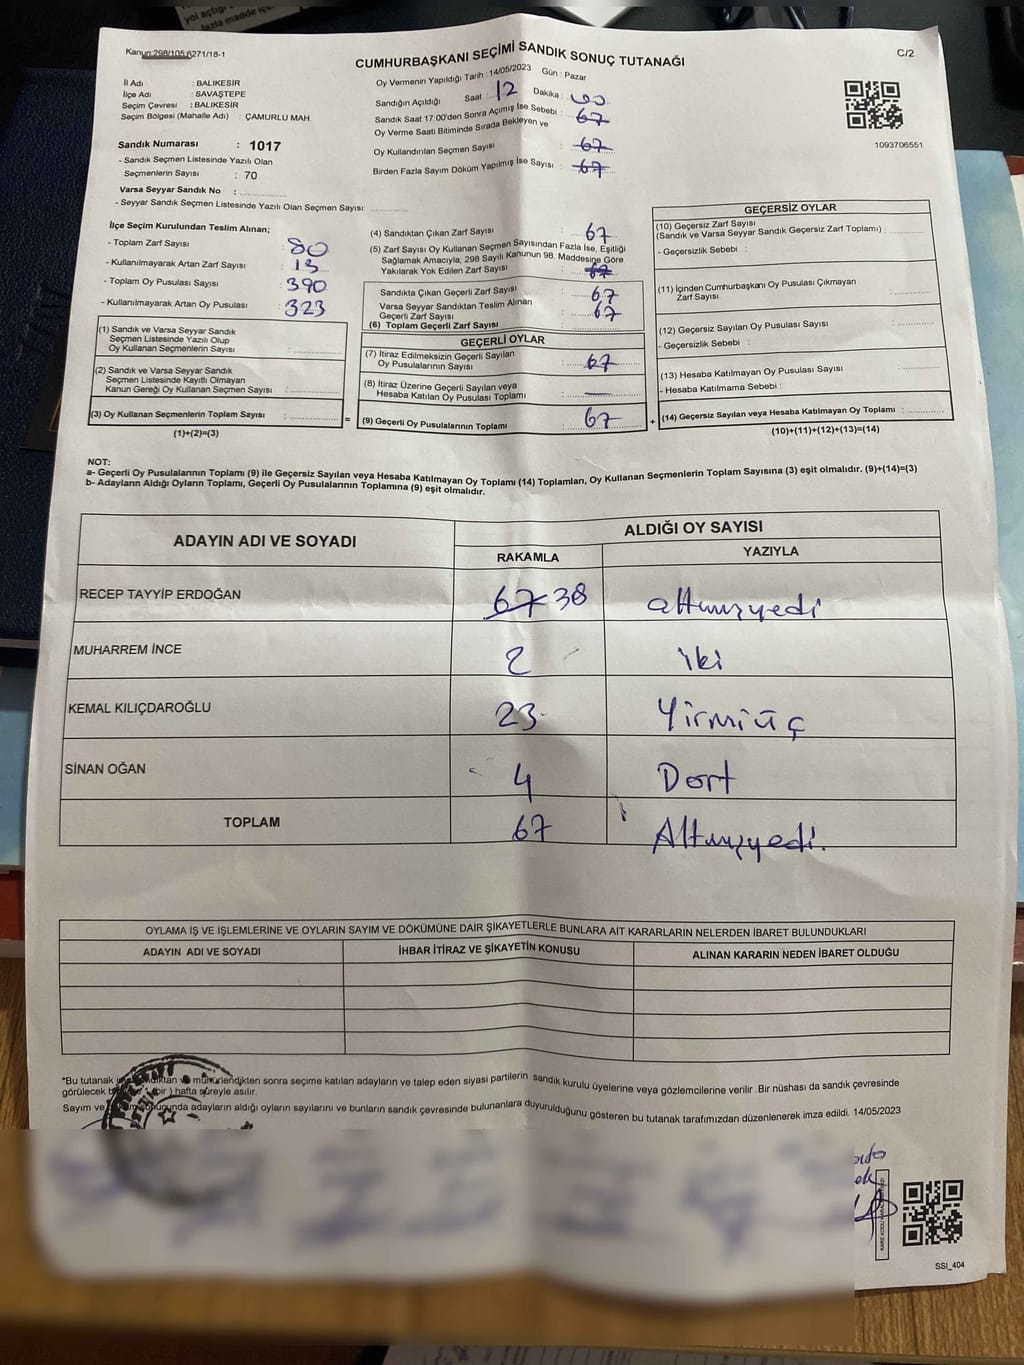 yol açtığı
fazla madde içe
Kanun:298/105;6271/18-1
CUMHURBAŞKANI SEÇİMİ SANDIK SONUÇ TUTANAĞI
C/2
İl Adı : BALIKESİR
İlçe Adı : SAVAŞTEPE
Seçim Çevresi : BALIKESİR
Seçim Bölgesi (Mahalle Adı) : ÇAMURLU MAH.
Sandık Numarası : 1017
- Sandık Seçmen Listesinde Yazılı Olan
Seçmenlerin Sayısı : 70
Varsa Seyyar Sandık No :
- Seyyar Sandık Seçmen Listesinde Yazılı Olan Seçmen Sayısı:
Oy Vermenin Yapıldığı Tarih : 14/05/2023 Gün : Pazar
Sandığın Açıldığı Saat : 12 Dakika :
Sandık Saat 17 00'den Sonra Açımış İse Sebebi : 67
Oy Verme Saati Bitiminde Sırada Bekleyen ve
Oy Kullandırılan Seçmen Sayısı : 67
Birden Fazla Sayım Döküm Yapılmış İse Sayısı : 67
1093706551
İlçe Seçim Kurulundan Teslim Alınan;
- Toplam Zarf Sayısı : 80
- Kullanılmayarak Artan Zarf Sayısı : 13
- Toplam Oy Pusulası Sayısı : 390
- Kullanılmayarak Artan Oy Pusulası : 323
(1) Sandık ve Varsa Seyyar Sandık
Seçmen Listesinde Yazılı Olup
Oy Kullanan Seçmenlerin Sayısı :
(2) Sandık ve Varsa Seyyar Sandık
Seçmen Listesinde Kayıtlı Olmayan
Kanun Gereği Oy Kullanan Seçmen Sayısı :
(3) Oy Kullanan Seçmenlerin Toplam Sayısı : =
(1)+(2)=(3)
(4) Sandıktan Çıkan Zarf Sayısı : 67
(5) Zarf Sayısı Oy Kullanan Seçmen Sayısından Fazla İse, Eşitliği
Sağlamak Amacıyla; 298 Sayılı Kanunun 98. Maddesine Göre
Yakılarak Yok Edilen Zarf Sayısı : 67
Sandıkta Çıkan Geçerli Zarf Sayısı : 67
Varsa Seyyar Sandıktan Teslim Alınan
Geçerli Zarf Sayısı : 67
(6) Toplam Geçerli Zarf Sayısı :
GEÇERLİ OYLAR
(7) İtiraz Edilmeksizin Geçerli Sayılan
Oy Pusulalarının Sayısı : 67
(8) İtiraz Üzerine Geçerli Sayılan veya
Hesaba Katılan Oy Pusulası Toplamı : —
(9) Geçerli Oy Pusulalarının Toplamı : 67 +
GEÇERSİZ OYLAR
(10) Geçersiz Zarf Sayısı
(Sandık ve Varsa Seyyar Sandık Geçersiz Zarf Toplamı) :
- Geçersizlik Sebebi :
(11) İçinden Cumhurbaşkanı Oy Pusulası Çıkmayan
Zarf Sayısı :
(12) Geçersiz Sayılan Oy Pusulası Sayısı :
- Geçersizlik Sebebi :
(13) Hesaba Katılmayan Oy Pusulası Sayısı :
- Hesaba Katılmama Sebebi :
(14) Geçersiz Sayılan veya Hesaba Katılmayan Oy Toplamı :
(10)+(11)+(12)+(13)=(14)
NOT:
a- Geçerli Oy Pusulalarının Toplamı (9) ile Geçersiz Sayılan veya Hesaba Katılmayan Oy Toplamı (14) Toplamları, Oy Kullanan Seçmenlerin Toplam Sayısına (3) eşit olmalıdır. (9)+(14)=(3)
b- Adayların Aldığı Oyların Toplamı, Geçerli Oy Pusulalarının Toplamına (9) eşit olmalıdır.
ADAYIN ADI VE SOYADI ALDIĞI OY SAYISI
RAKAMLA YAZIYLA
RECEP TAYYİP ERDOĞAN 67 38 altmışyedi
MUHARREM İNCE 2 iki
KEMAL KILIÇDAROĞLU 23 Yirmiüç
SİNAN OĞAN 4 Dort
TOPLAM 67 Altmışyedi.
OYLAMA İŞ VE İŞLEMLERİNE VE OYLARIN SAYIM VE DÖKÜMÜNE DAİR ŞİKAYETLERLE BUNLARA AİT KARARLARIN NELERDEN İBARET BULUNDUKLARI
ADAYIN ADI VE SOYADI İHBAR İTİRAZ VE ŞİKAYETİN KONUSU ALINAN KARARIN NEDEN İBARET OLDUĞU
*Bu tutanak mühürlendikten sonra seçime katılan adayların ve talep eden siyasi partilerin sandık kurulu üyelerine veya gözlemcilerine verilir. Bir nüshası da sandık çevresinde
görülecek hafta süreyle asılır.
Sayım ve adayların aldığı oyların sayılarını ve bunların sandık çevresinde bulunanlara duyurulduğunu gösteren bu tutanak tarafımızdan düzenlenerek imza edildi. 14/05/2023
SSI_404